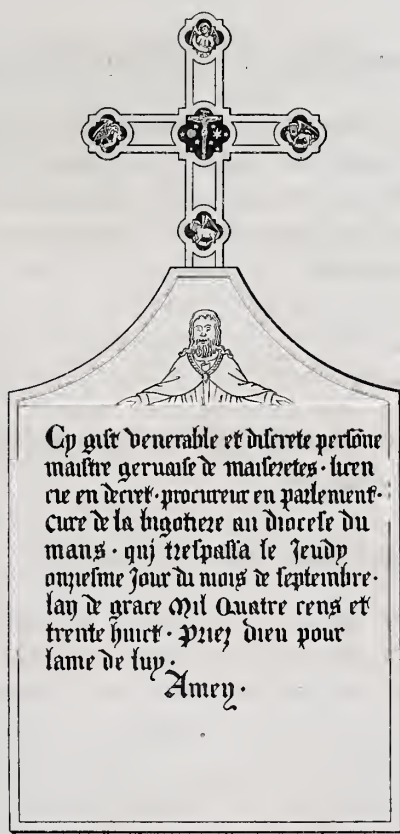 Cy gist venerable et discrete persōne
maistre geruaise de maiseretes · licen
cie en decret · procureur en parlement ·
Cure de la bigotiere au diocese du
mans · qui trespassa le Jeudy
onziesme Jour du mois de septembre ·
lan de grace Mil Quatre cens et
trente huict · Priez dieu pour
lame de luy ·
Amen ·